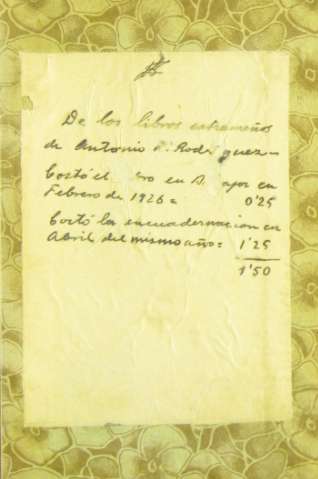 De los libros extremeños
de Antonio R. Rodriguez =
Costó el libro en Badajoz en
Febrero de 1926 = 0'25
Costó la encuadernacion en
Abril del mismo año = 1'25
1'50